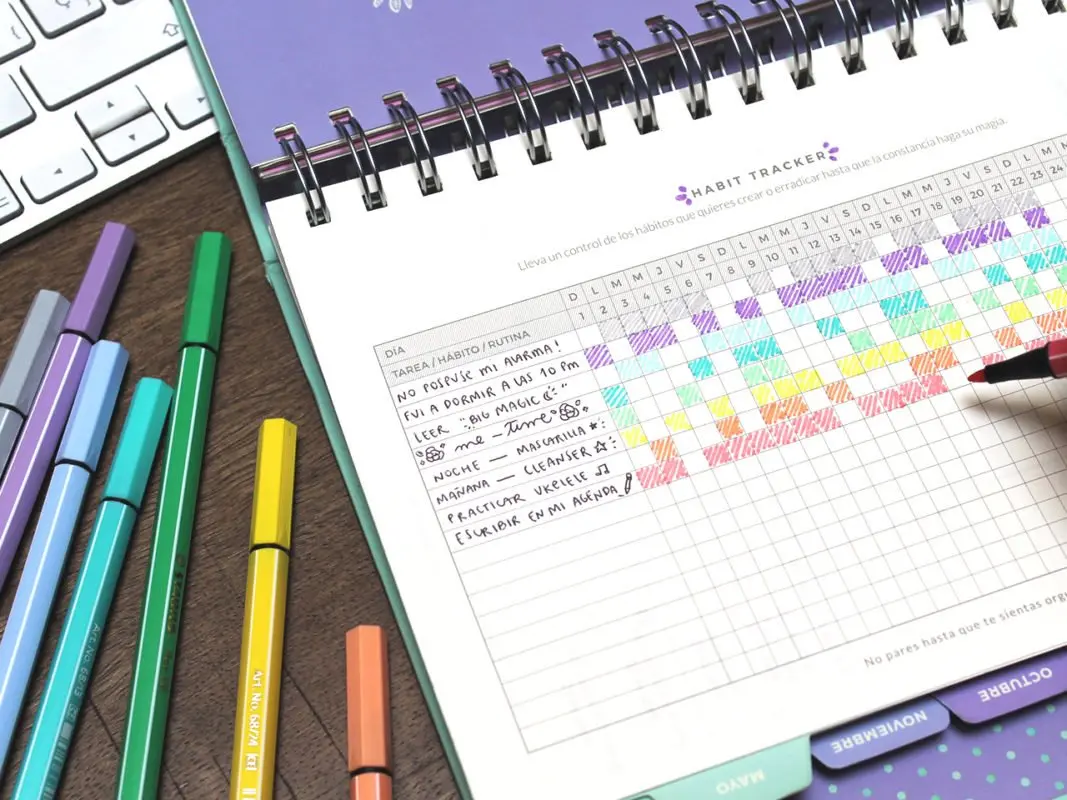 HABIT TRACKER
Lleva un control de los hábitos que quieres crear o erradicar hasta que la constancia haga su magia.
DÍA D L M M J V S D L M M J V S D L M M J V S D L M
TAREA / HÁBITO / RUTINA 1 2 3 4 5 6 7 8 9 10 11 12 13 14 15 16 17 18 19 20 21 22 23 24
NO POSPUSE MI ALARMA!
FUI A DORMIR A LAS 10 PM
LEER "BIG MAGIC"
me-time
NOCHE — MASCARILLA
MAÑANA — CLEANSER
PRACTICAR UKELELE
ESCRIBIR EN MI AGENDA
No pares hasta que te sientas
OCTUBRE
NOVIEMBRE
MAYO
Art. No. 68/13
Art. No. 68/24